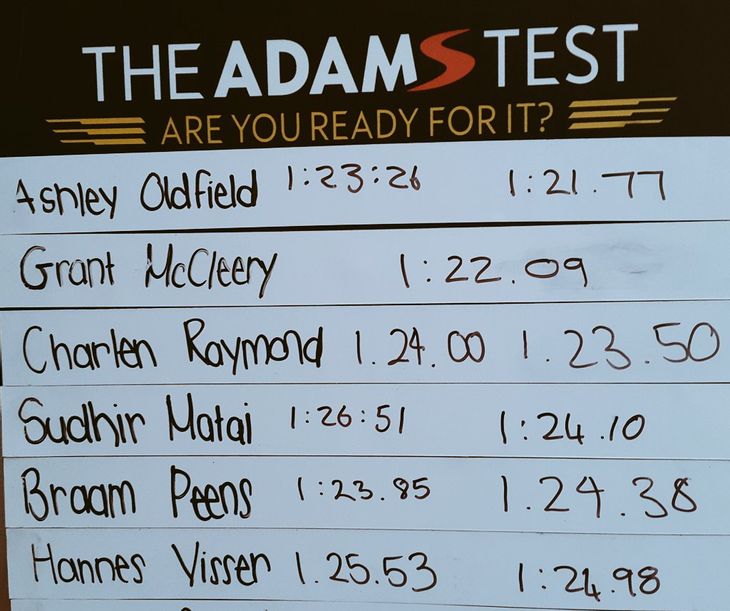 THE ADAMS TEST
ARE YOU READY FOR IT?
Ashley Oldfield 1:23:26 1:21.77
Grant McCleery 1:22.09
Charlen Raymond 1.24.00 1.23.50
Sudhir Matai 1:26:51 1:24.10
Braam Peens 1:23.85 1.24.38
Hannes Visser 1.25.53 1:24.98